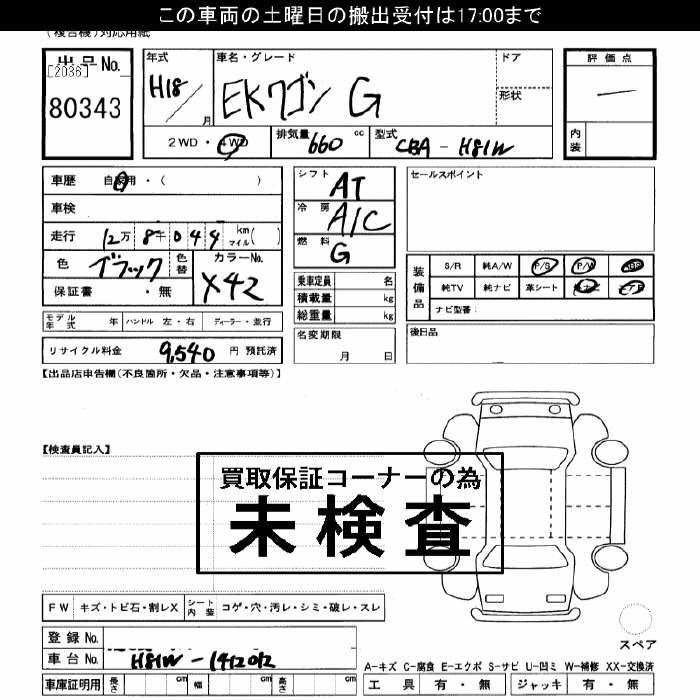 この車両の土曜日の搬出受付は17:00まで
(複合機)対応用紙
出品No.
[2036]
80343
年式
H18
月
車名・グレード
EKワゴン G
ドア
形状
評価点
内装
2WD・4WD
排気量 660 cc
型式 CBA-H81W
車歴 自家用・( )
車検
走行 12万 8千 0 4 4 km マイル( )
色 ブラック
色替
カラーNo.
X42
保証書 ・無
シフト AT
冷房 A/C
燃料 G
乗車定員 名
積載量 kg
総重量 kg
セールスポイント
装備品
S/R 純A/W P/S P/W
純TV 純ナビ 革シート
ナビ型番:
モデル年式 年 ハンドル 左・右 ディーラー・並行
リサイクル料金 9,540 円 預託済
名変期限
月 日
後日品
【出品店申告欄(不良箇所・欠品・注意事項等)】
【検査員記入】
買取保証コーナーの為
未検査
FW キズ・トビ石・割レX シート内装 コゲ・穴・汚レ・シミ・破レ・スレ
登録No.
車台No. H81W-1412012
スペア
A-キズ C-腐食 E-エクボ S-サビ U-凹ミ W-補修 XX-交換済
車庫証明用 長さ cm 幅 cm 高さ cm
工具 有・無 ジャッキ 有・無